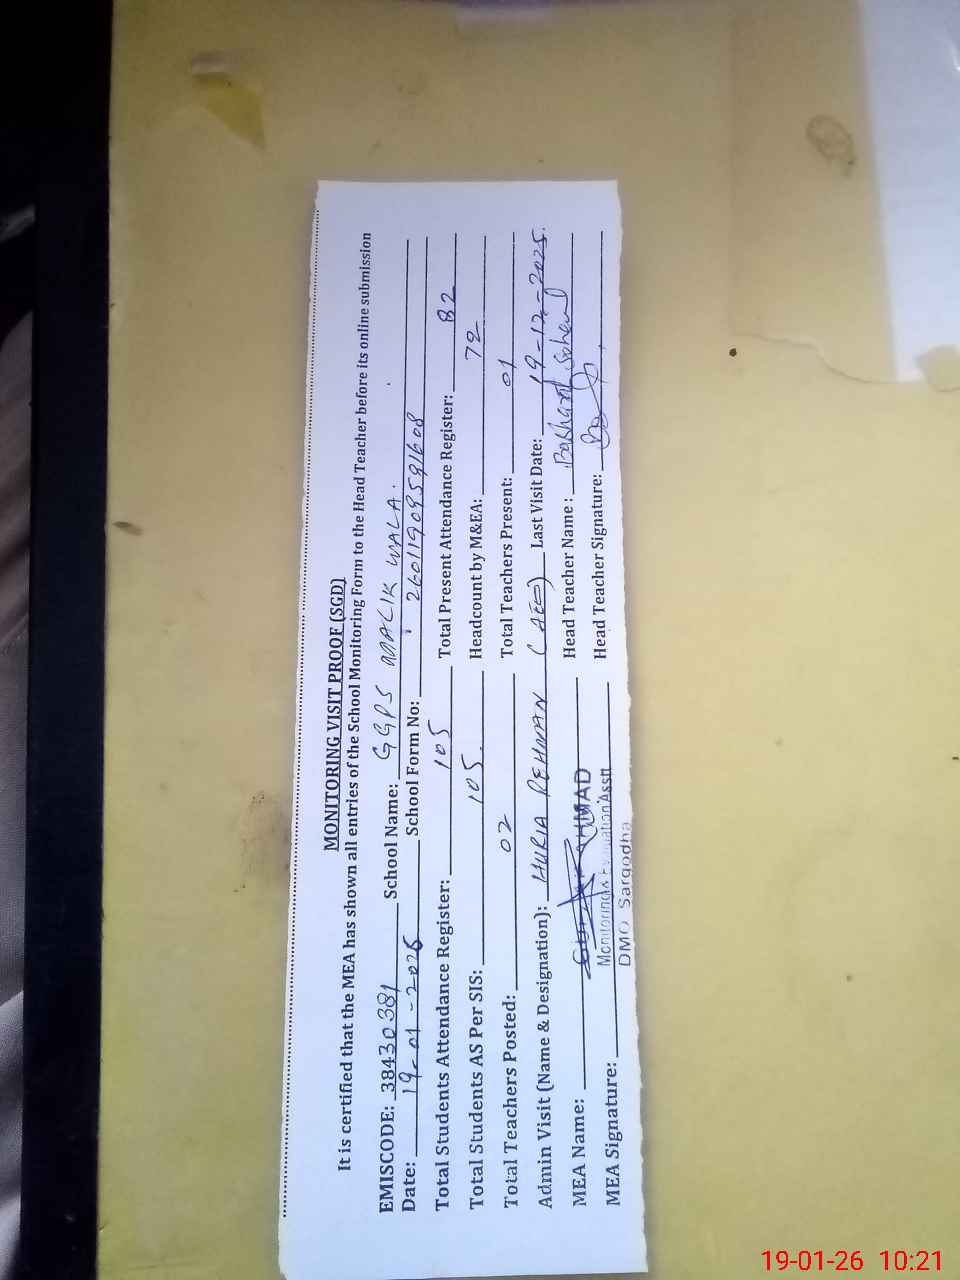 MONITORING VISIT PROOF (SGD)
It is certified that the MEA has shown all entries of the School Monitoring Form to the Head Teacher before its online submission
EMISCODE: 38430381 School Name: GGPS MALIK WALA.
Date: 19-01-2026 School Form No: 26011909591608
Total Students Attendance Register: 105 Total Present Attendance Register: 82
Total Students AS Per SIS: 105. Headcount by M&EA: 72
Total Teachers Posted: 02 Total Teachers Present: 01
Admin Visit (Name & Designation): HURIA REHMAN (AEO) Last Visit Date: 19-12-2025.
MEA Name: AHMAD Head Teacher Name:
Monitoring & Evaluation Asstt
MEA Signature: DMO Sargodha Head Teacher Signature:
19-01-26 10:21